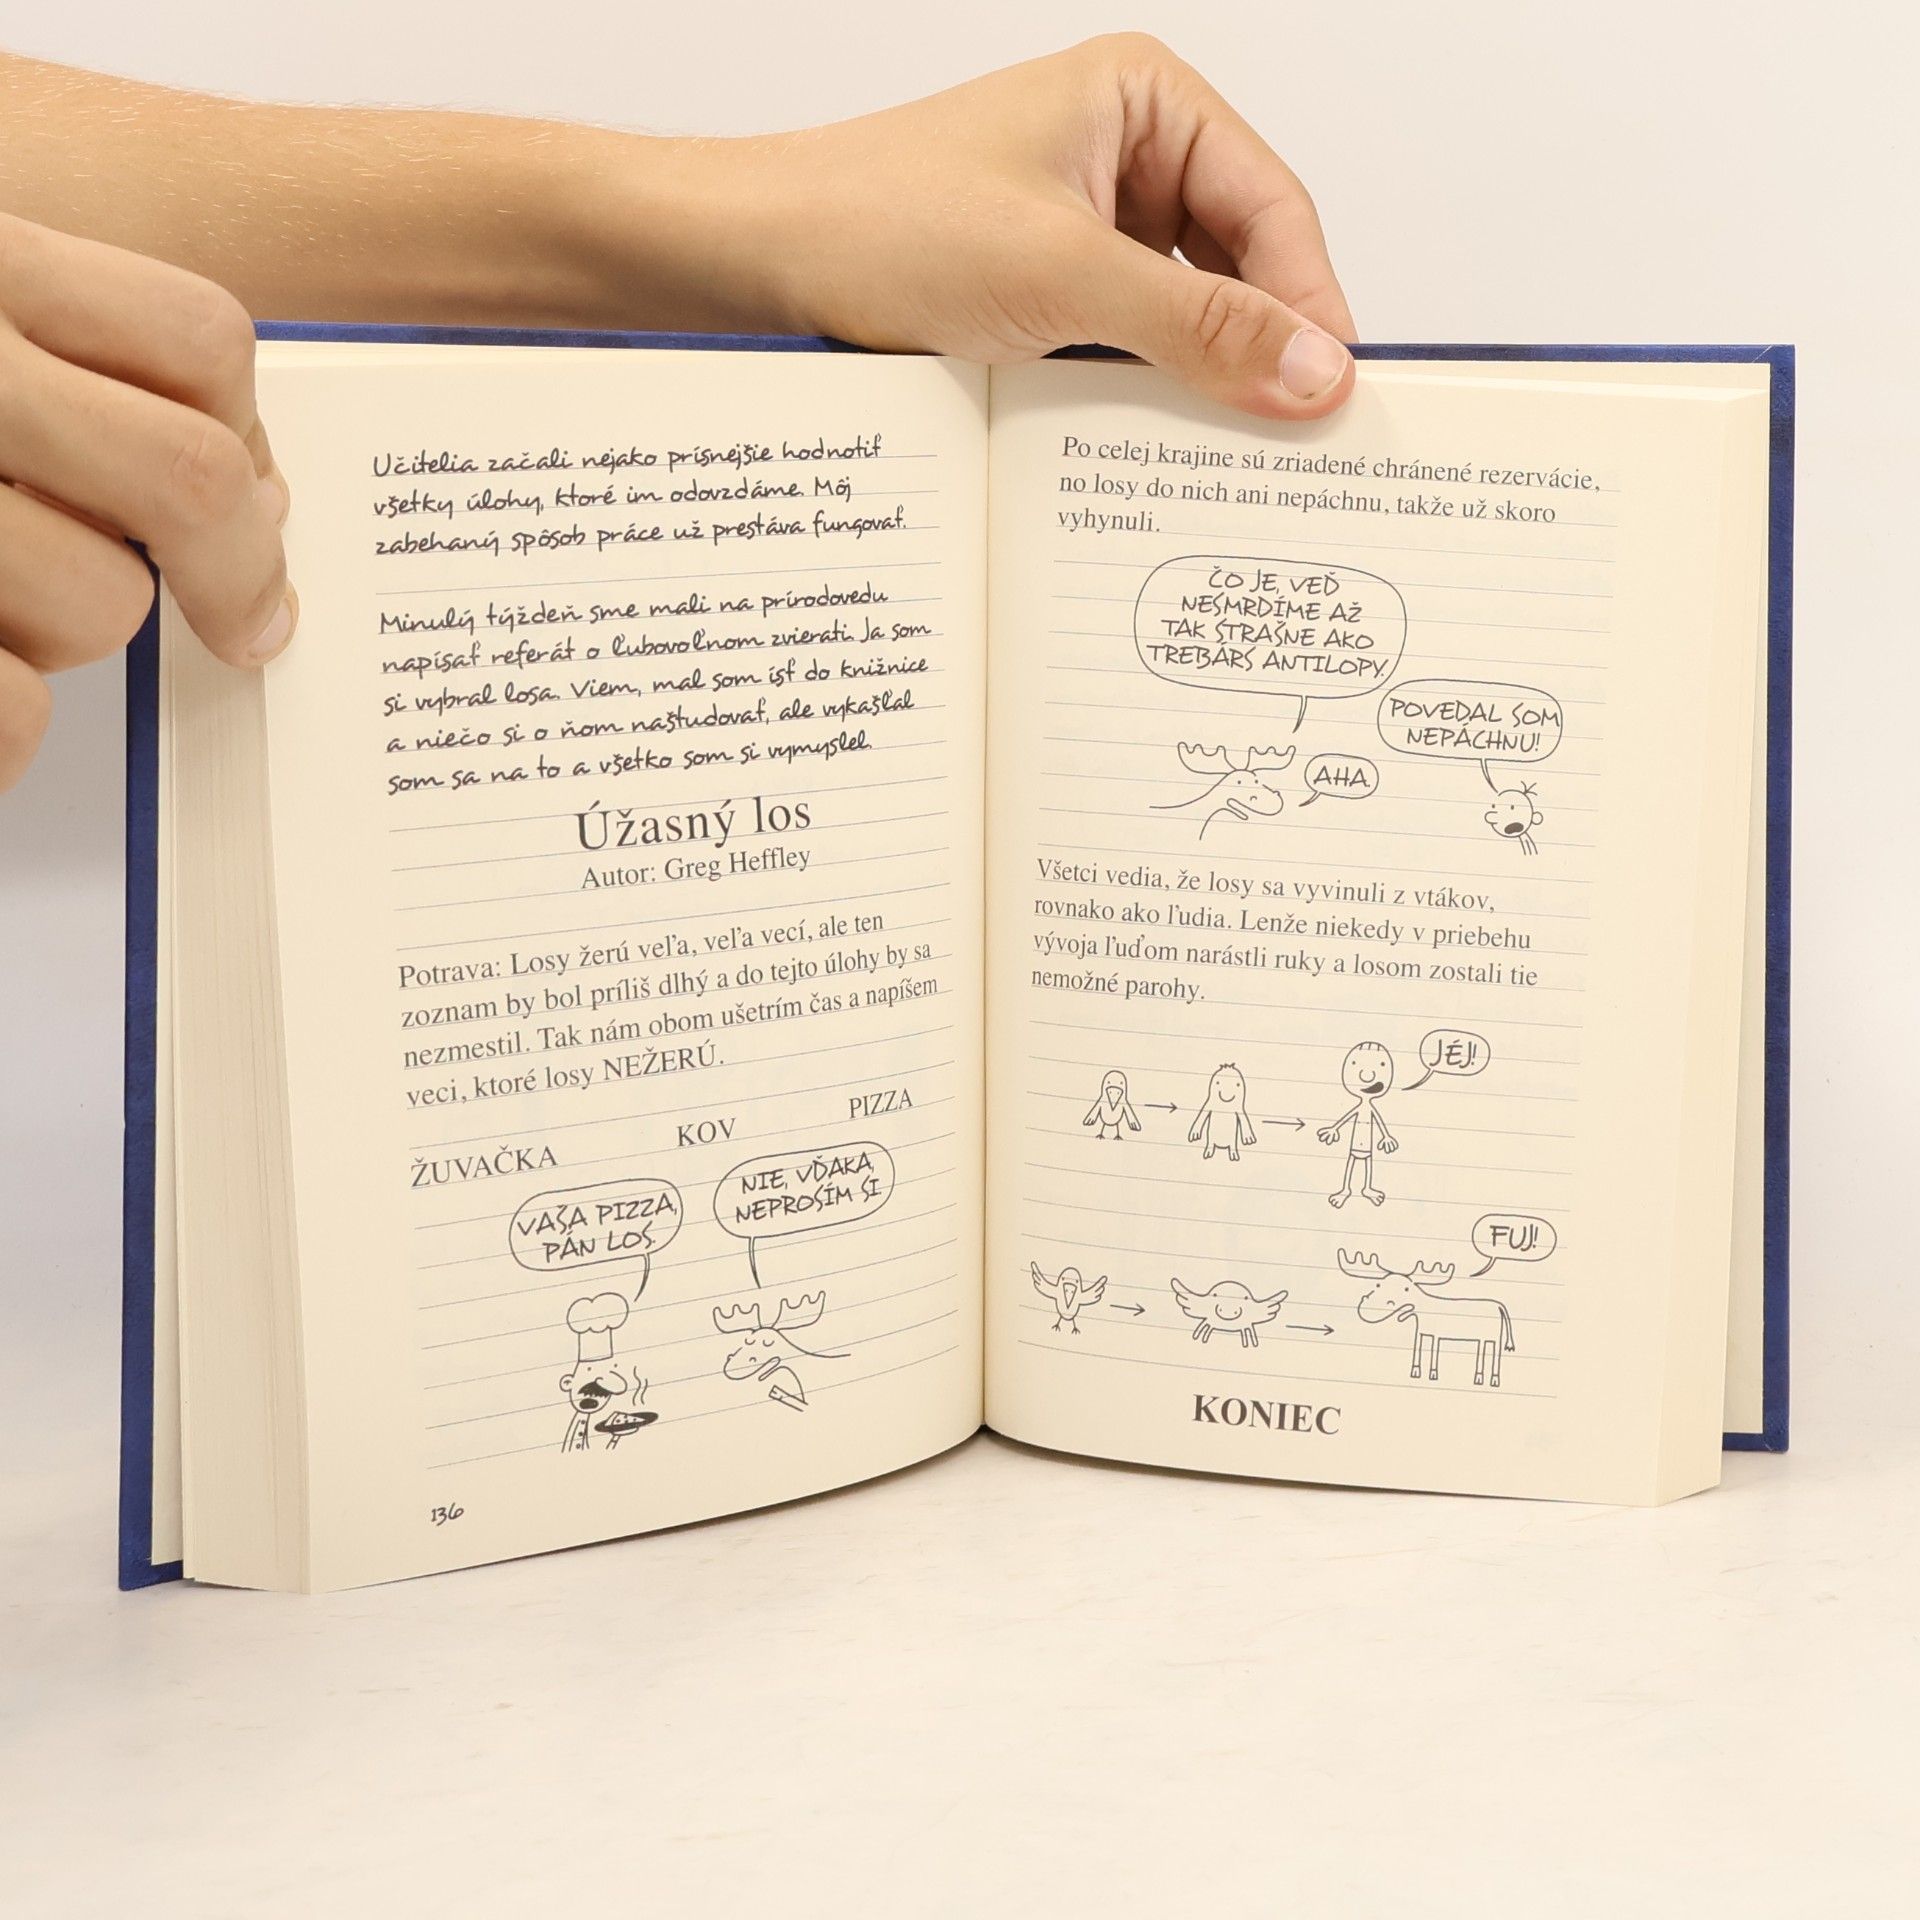 Učitelia začali nejako prísnejšie hodnotiť
všetky úlohy, ktoré im odovzdáme. Môj
zabehaný spôsob práce už prestáva fungovať.
Minulý týždeň sme mali na prírodovedu
napísať referát o ľubovoľnom zvierati. Ja som
si vybral losa. Viem, mal som ísť do knižnice
a niečo si o ňom naštudovať, ale vykašľal
som sa na to a všetko som si vymyslel.
Úžasný los
Autor: Greg Heffley
Potrava: Losy žerú veľa, veľa vecí, ale ten
zoznam by bol príliš dlhý a do tejto úlohy by sa
nezmestil. Tak nám obom ušetrím čas a napíšem
veci, ktoré losy NEŽERÚ.
ŽUVAČKA KOV PIZZA
VAŠA PIZZA,
PÁN LOS.
NIE, VĎAKA,
NEPROSÍM SI.
136
Po celej krajine sú zriadené chránené rezervácie,
no losy do nich ani nepáchnu, takže už skoro
vyhynuli.
ČO JE, VEĎ
NESMRDÍME AŽ
TAK STRAŠNE AKO
TREBÁRS ANTILOPY.
POVEDAL SOM
NEPÁCHNU!
AHA.
Všetci vedia, že losy sa vyvinuli z vtákov,
rovnako ako ľudia. Lenže niekedy v priebehu
vývoja ľuďom narástli ruky a losom zostali tie
nemožné parohy.
JÉJ!
FUJ!
KONIEC